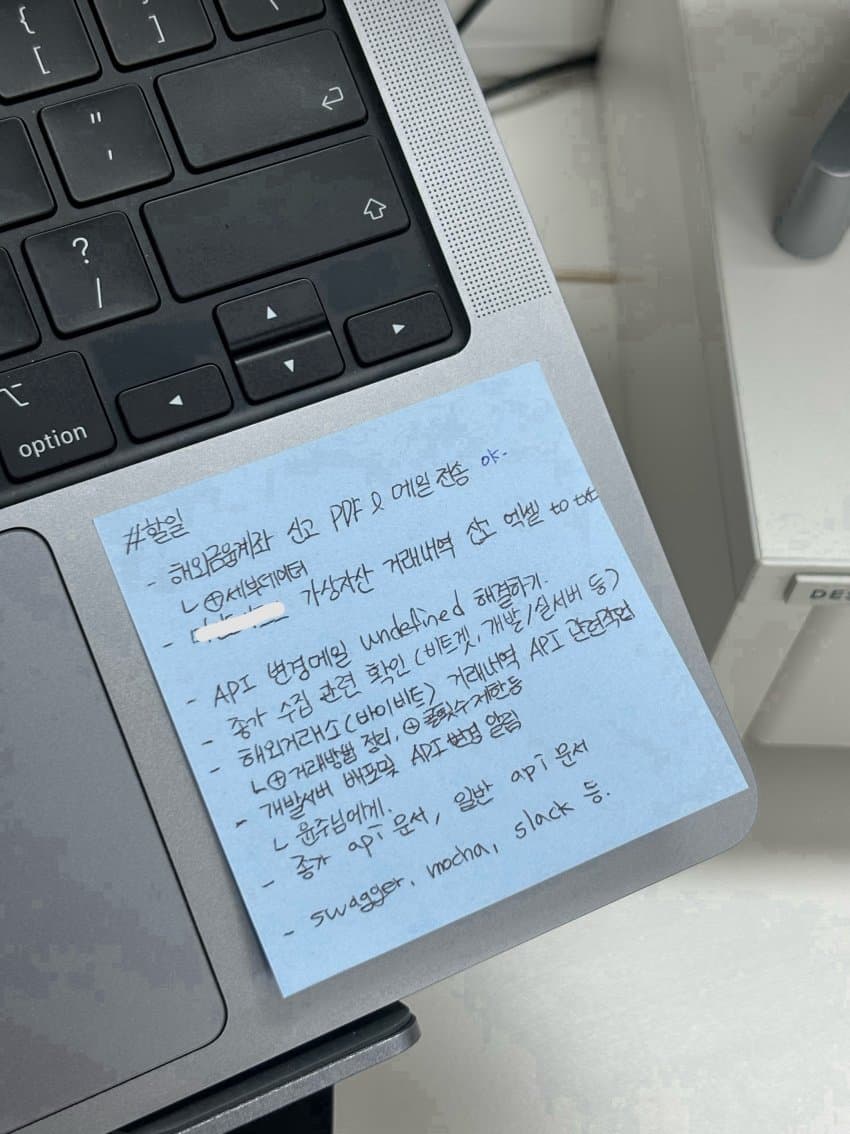 {
[
}
]
\
"
'
?
/
option
#할일
- 해외금융계좌 신고 PDF & 메일 전송 OK.
ㄴ ⊕세부데이터
- 가상자산 거래내역 신고 엑셀 to txt
- API 변경메일 undefined 해결하기.
- 종가 수집 관련 확인 (비트겟, 개발/실서버 등)
- 해외거래소(바이비트) 거래내역 API 관련작업
ㄴ ⊕거래방법 정리, ⊕ 제한등
- 개발서버 배포및 API 변경 알림
ㄴ 윤주님에게.
- 종가 api 문서, 일반 api 문서
- swagger, mocha, slack 등.
DES